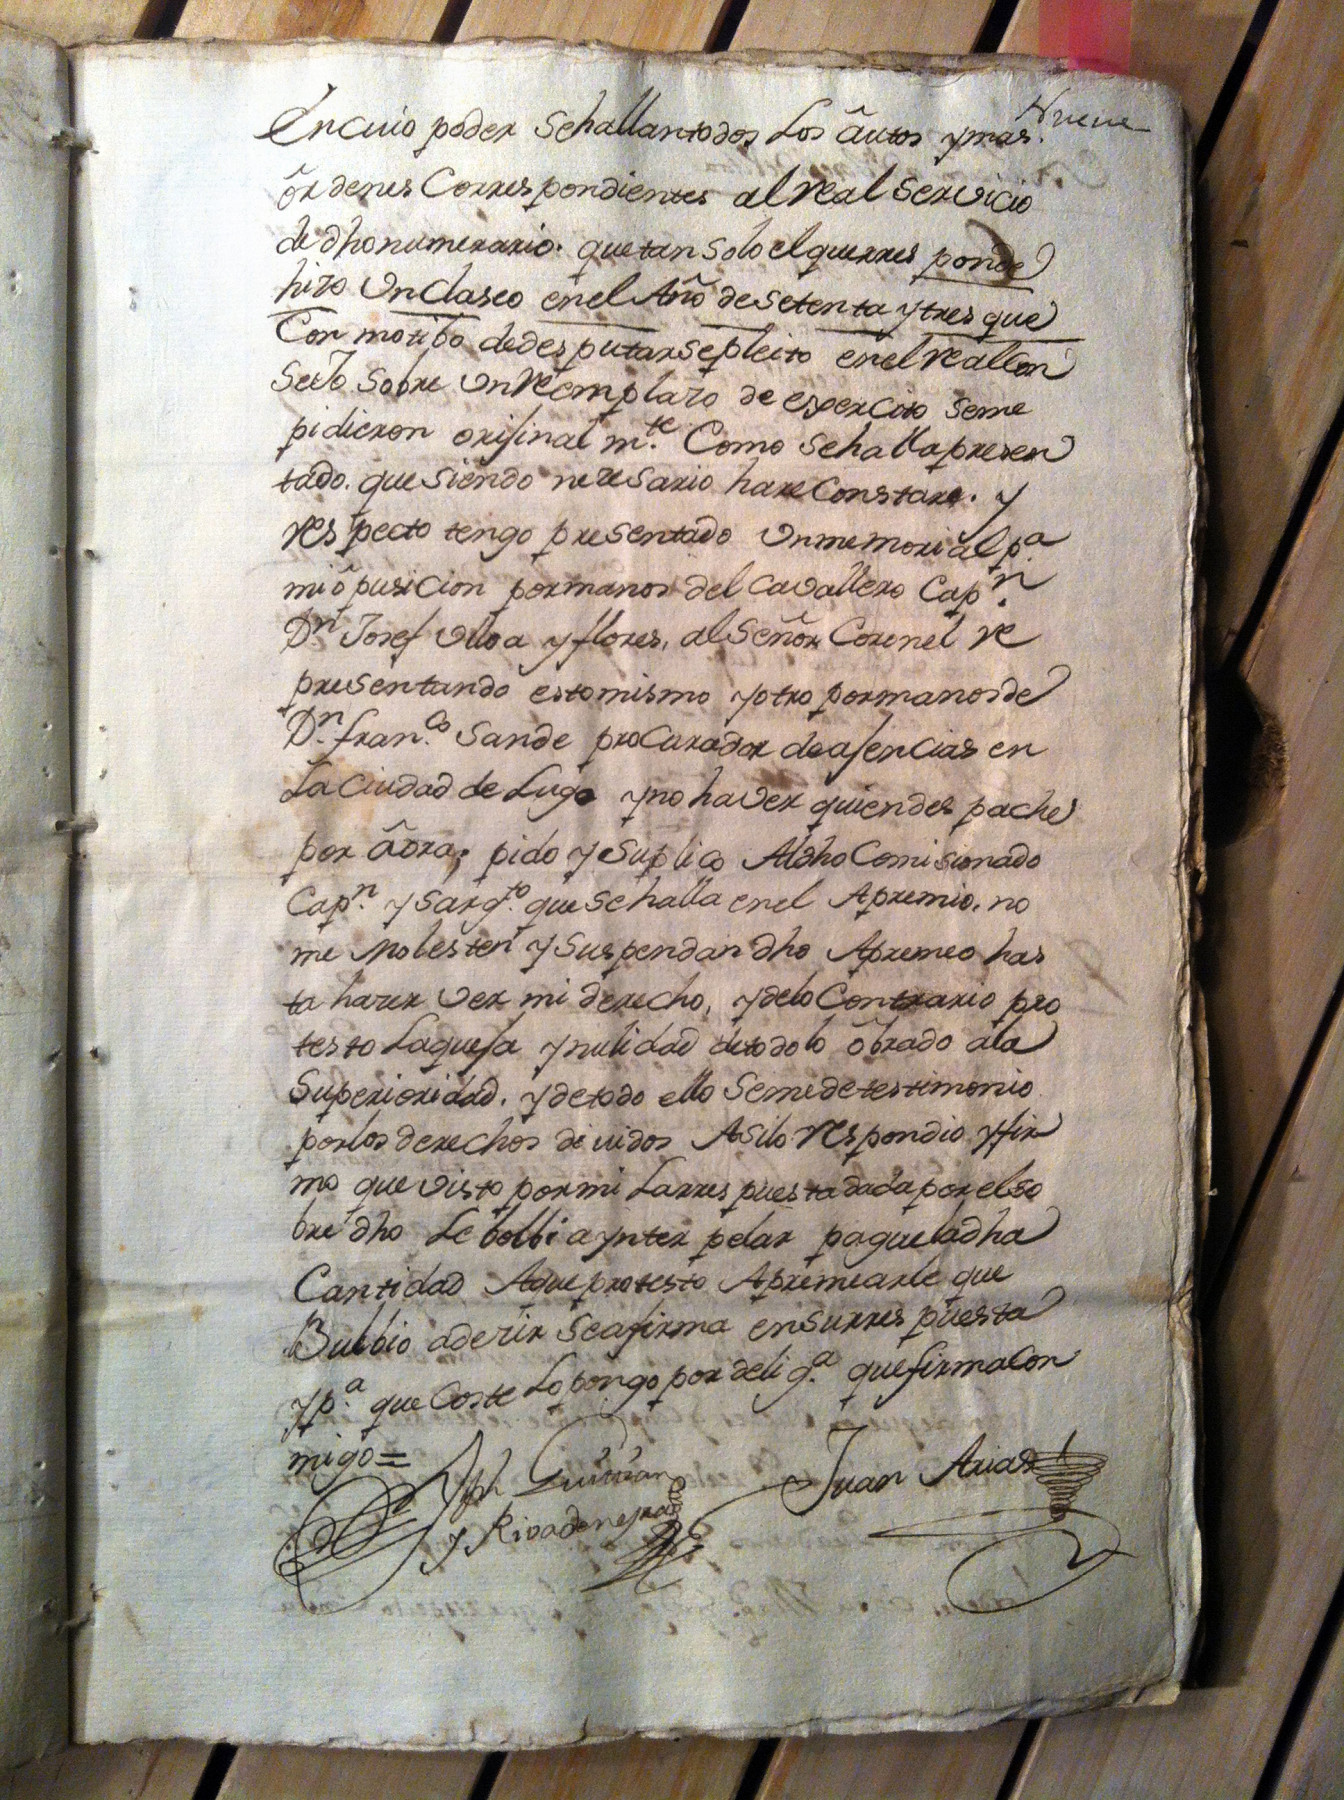 Nueve
En cuio poder se hallan todos los âutos y mas.
ôrdenes Correspondientes al real servicio
de dho numerario. que tan solo el que rresponde
hizo un claseo en el Año de setenta y tres que
Con motibo de desputarse pleito en el real Con
seJo sobre un reemplazo de exercito se me
pidieron orijinal m.te Como se halla presen
tado. que siendo nezesario hare Constare. y
respecto tengo presentado un memorial p.a
mi ôpusicion por manos del cavallero Cap.n
D.n Josef Ulloa y flores, al Señor Corenel re
presentando esto mismo y otro por manos de
D.n fran.co Sande procurador de ajencias en
La Ciudad de Lugo y no haver quien des pache
por âora; pido y suplico Al dho Comisionado
Cap.n y sarg.to que se halla en el Apremio, no
me Molesten y suspendan dho Apremeo has
ta hazer ver mi derecho, y de lo Contrario pro
testo la queja y nulidad de todo lo ôbrado a la
Superioridad. y de todo ello se me de testimonio
por los derechos devidos Asilo respondio y fir
mo que visto por mi la rrespuesta dada por el so
bre dho le bolbi a ynterpelar pague la dha
Cantidad A que protesto Apremearle que
Bulbio a dezir se afirma en su rrespuesta
y p.a que Coste lo pongo por delig.a que firma Con
migo =
Jph Guitian
y Rivadeneyra
Juan Arias